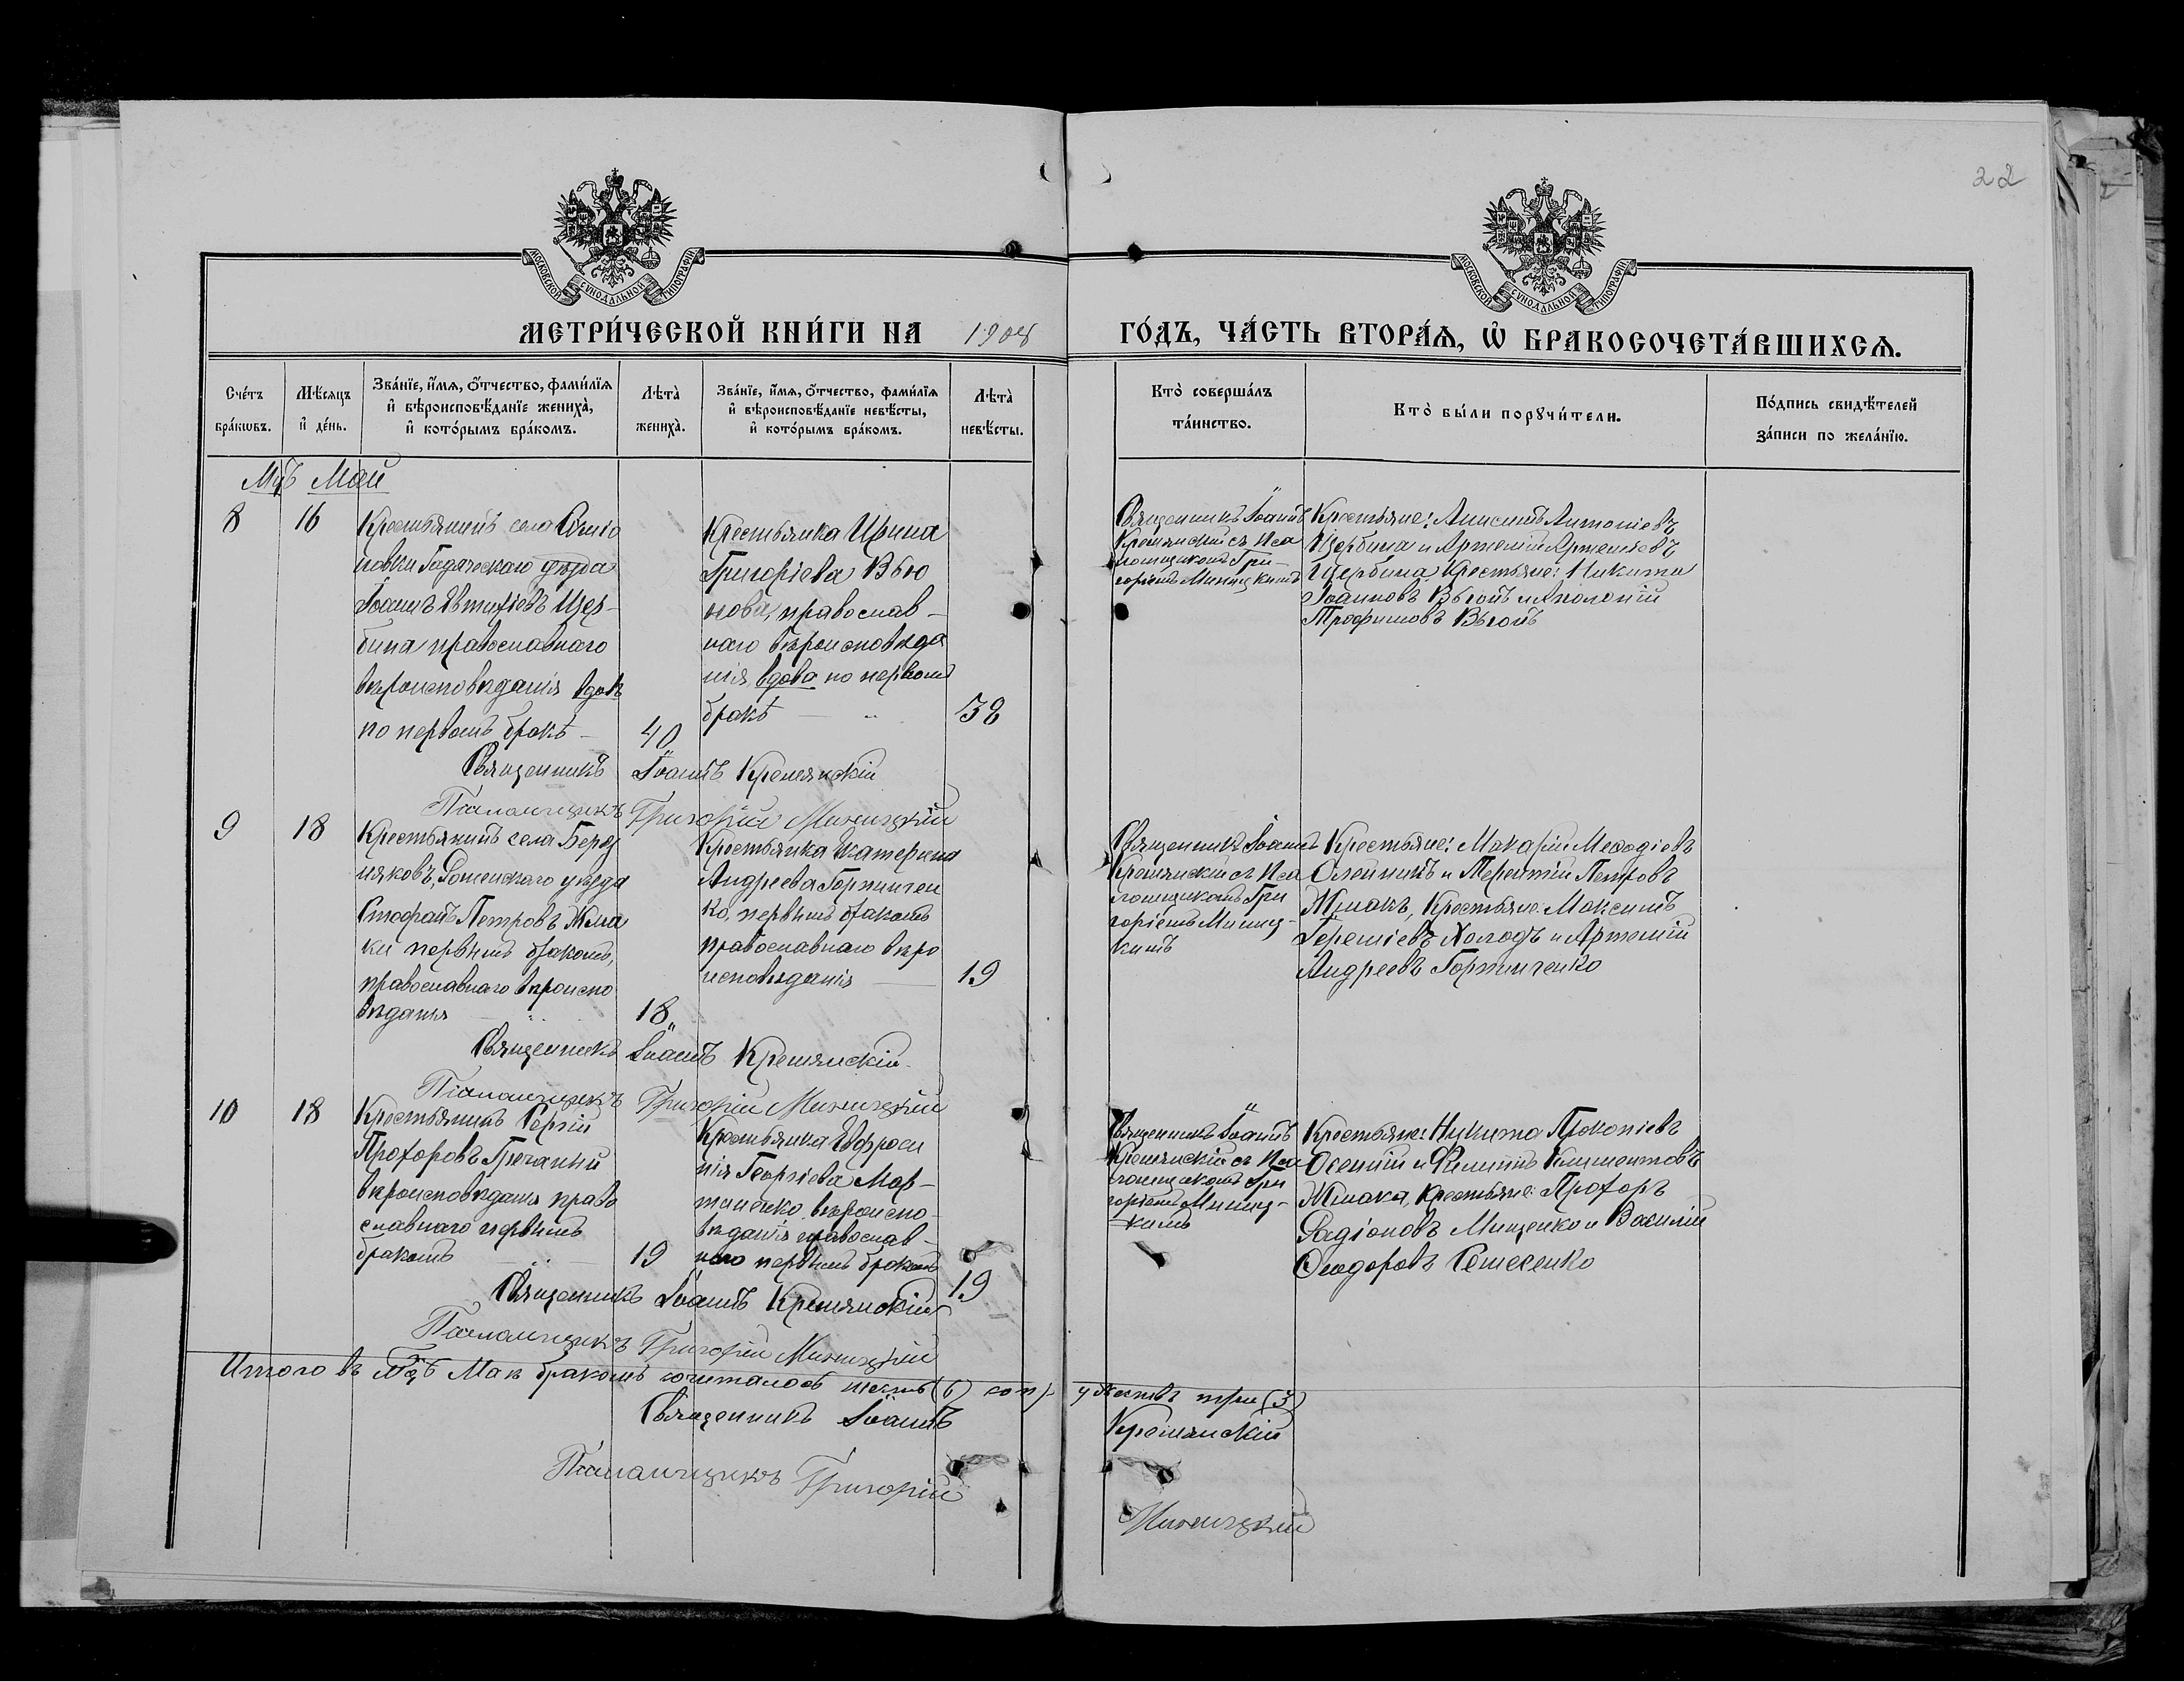 22
МОСКОВСКОЙ СѴНОДАЛЬНОЙ ТИПОГРАФІИ
МОСКОВСКОЙ СѴНОДАЛЬНОЙ ТИПОГРАФІИ
МЕТРИ́ЧЕСКОЙ КНИ́ГИ НА 1908
ГО́ДЪ, ЧА́СТЬ ВТОРА́Ѧ, Ѡ҆ БРАКОСОЧЕТА́ВШИХСѦ.
Сче́тъ
бра́кѡвъ.
Мѣ́сѧцъ
и҆ де́нь.
Зва́нїе, и҆́мѧ, ѻ҆́тчество, фами́лїѧ
и҆ вѣроисповѣ́данїе жениха̀,
и҆ кото́рымъ бра́комъ.
Лѣта̀
жениха̀.
Зва́нїе, и҆́мѧ, ѻ҆́тчество, фами́лїѧ
и҆ вѣроисповѣ́данїе невѣ́сты,
и҆ кото́рымъ бра́комъ.
Лѣта̀
невѣ́сты.
Кто̀ соверша́лъ
та́инство.
Кто̀ бы́ли порꙋчи́тели.
По́дпись свидѣ́телей
за́писи по жела́нїю.
Мцъ Май
8
16
Крестьянинъ села
новки Гадяческаго уѣзда
Іоаннъ Евтихіевъ Щер-
бина православнаго
вѣроисповѣданія вдовъ
по первомъ бракѣ –
40
Крестьянка Ирина
Григоріева Вью
нова, православ-
наго вѣроисповѣда
нія, вдова по первомъ
бракѣ –
38
Священникъ Іоаннъ
Кремянскій съ Пса
ломщикомъ Гри-
горіемъ Миницкимъ
Крестьяне: Анисимъ Антоніевъ
Щербина и Артемій Артеміевъ
Щербина Крестьяне: Никита
Іоанновъ Вьюнъ и Аполоній
Трофимовъ Вьюнъ
Священникъ Іоаннъ Кремянскій
Псаломщикъ Григорій Миницкій
9
18
Крестьянинъ села Берез
няковъ, Роменскаго уѣзда
Стефанъ Петровъ Жма
ки первымъ бракомъ,
православнаго вѣроиспо
вѣданія
18
Крестьянка Екатерина
Андреева Горпинчен
ко, первымъ бракомъ
православнаго вѣро
исповѣданія
19
Священникъ Іоаннъ
Кремянскій съ Пса
ломщикомъ Гри
горіемъ Миниц-
кимъ
Крестьяне: Макарій Меѳодіевъ
Олейникъ и Терентій Петровъ
Жмакъ, Крестьяне: Максимъ
Іереміевъ Холодъ и Артемій
Андреевъ Горпинченко
Священникъ Іоаннъ Кремянскій
Псаломщикъ Григорій Миницкій
10
18
Крестьянинъ Сергій
Прохоровъ Гречаный
вѣроисповѣданія право
славнаго первымъ
бракомъ
19
Крестьянка Евфроси
нія Георгіева Мар-
тиненко, вѣроиспо-
вѣданія православ-
наго первымъ бракомъ
19
Священникъ Іоаннъ
Кремянскій съ Пса
ломщикомъ Гри
горіемъ Миниц-
кимъ
Крестьяне: Никита Прокопіевъ
Осенній и Филиппъ Климентовъ
Жмака, Крестьяне: Прохоръ
Радіоновъ Мищенко и Василій
Ѳеодоровъ
Священникъ Іоаннъ Кремянскій
Псаломщикъ Григорій Миницкій
Итого въ Мцѣ Маѣ бракомъ сочеталось шесть (6) соп-ружествъ три (3)
Священникъ Іоаннъ Кремянскій
Псаломщикъ Григорій Миницкій